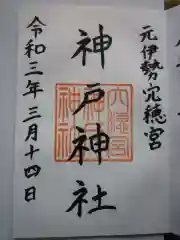 元伊勢宍穂宮
神戸神社
令和三年三月十四日